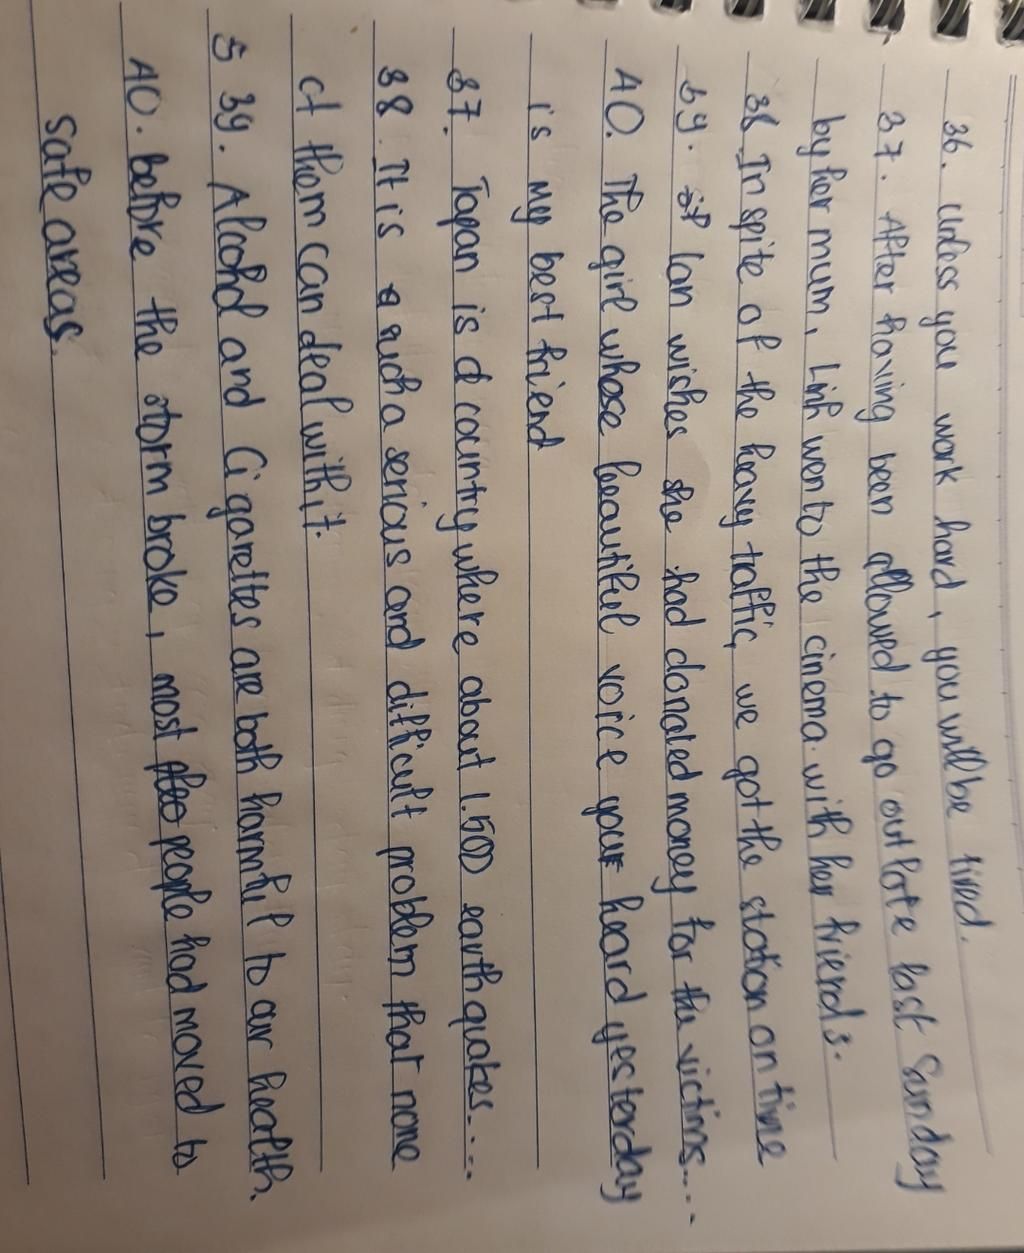 36. Unless you work hard, you will be tired.
37. After having been allowed to go out late last Sunday
by her mum, Linh wento the cinema with her friends.
38 In spite of the heavy traffic, we got the station on time
39. Lan wishes she had donated money for the victims....
40. The girl whose beautiful voice your heard yesterday
is my best friend
37. Japan is a country where about 1.500 earthquakes....
38. It is such a serious and difficult problem that none
of them can deal with it.
5 39. Alcohol and Cigarettes are both harmful to our health.
40. before the storm broke, most people had moved to
safe areas.